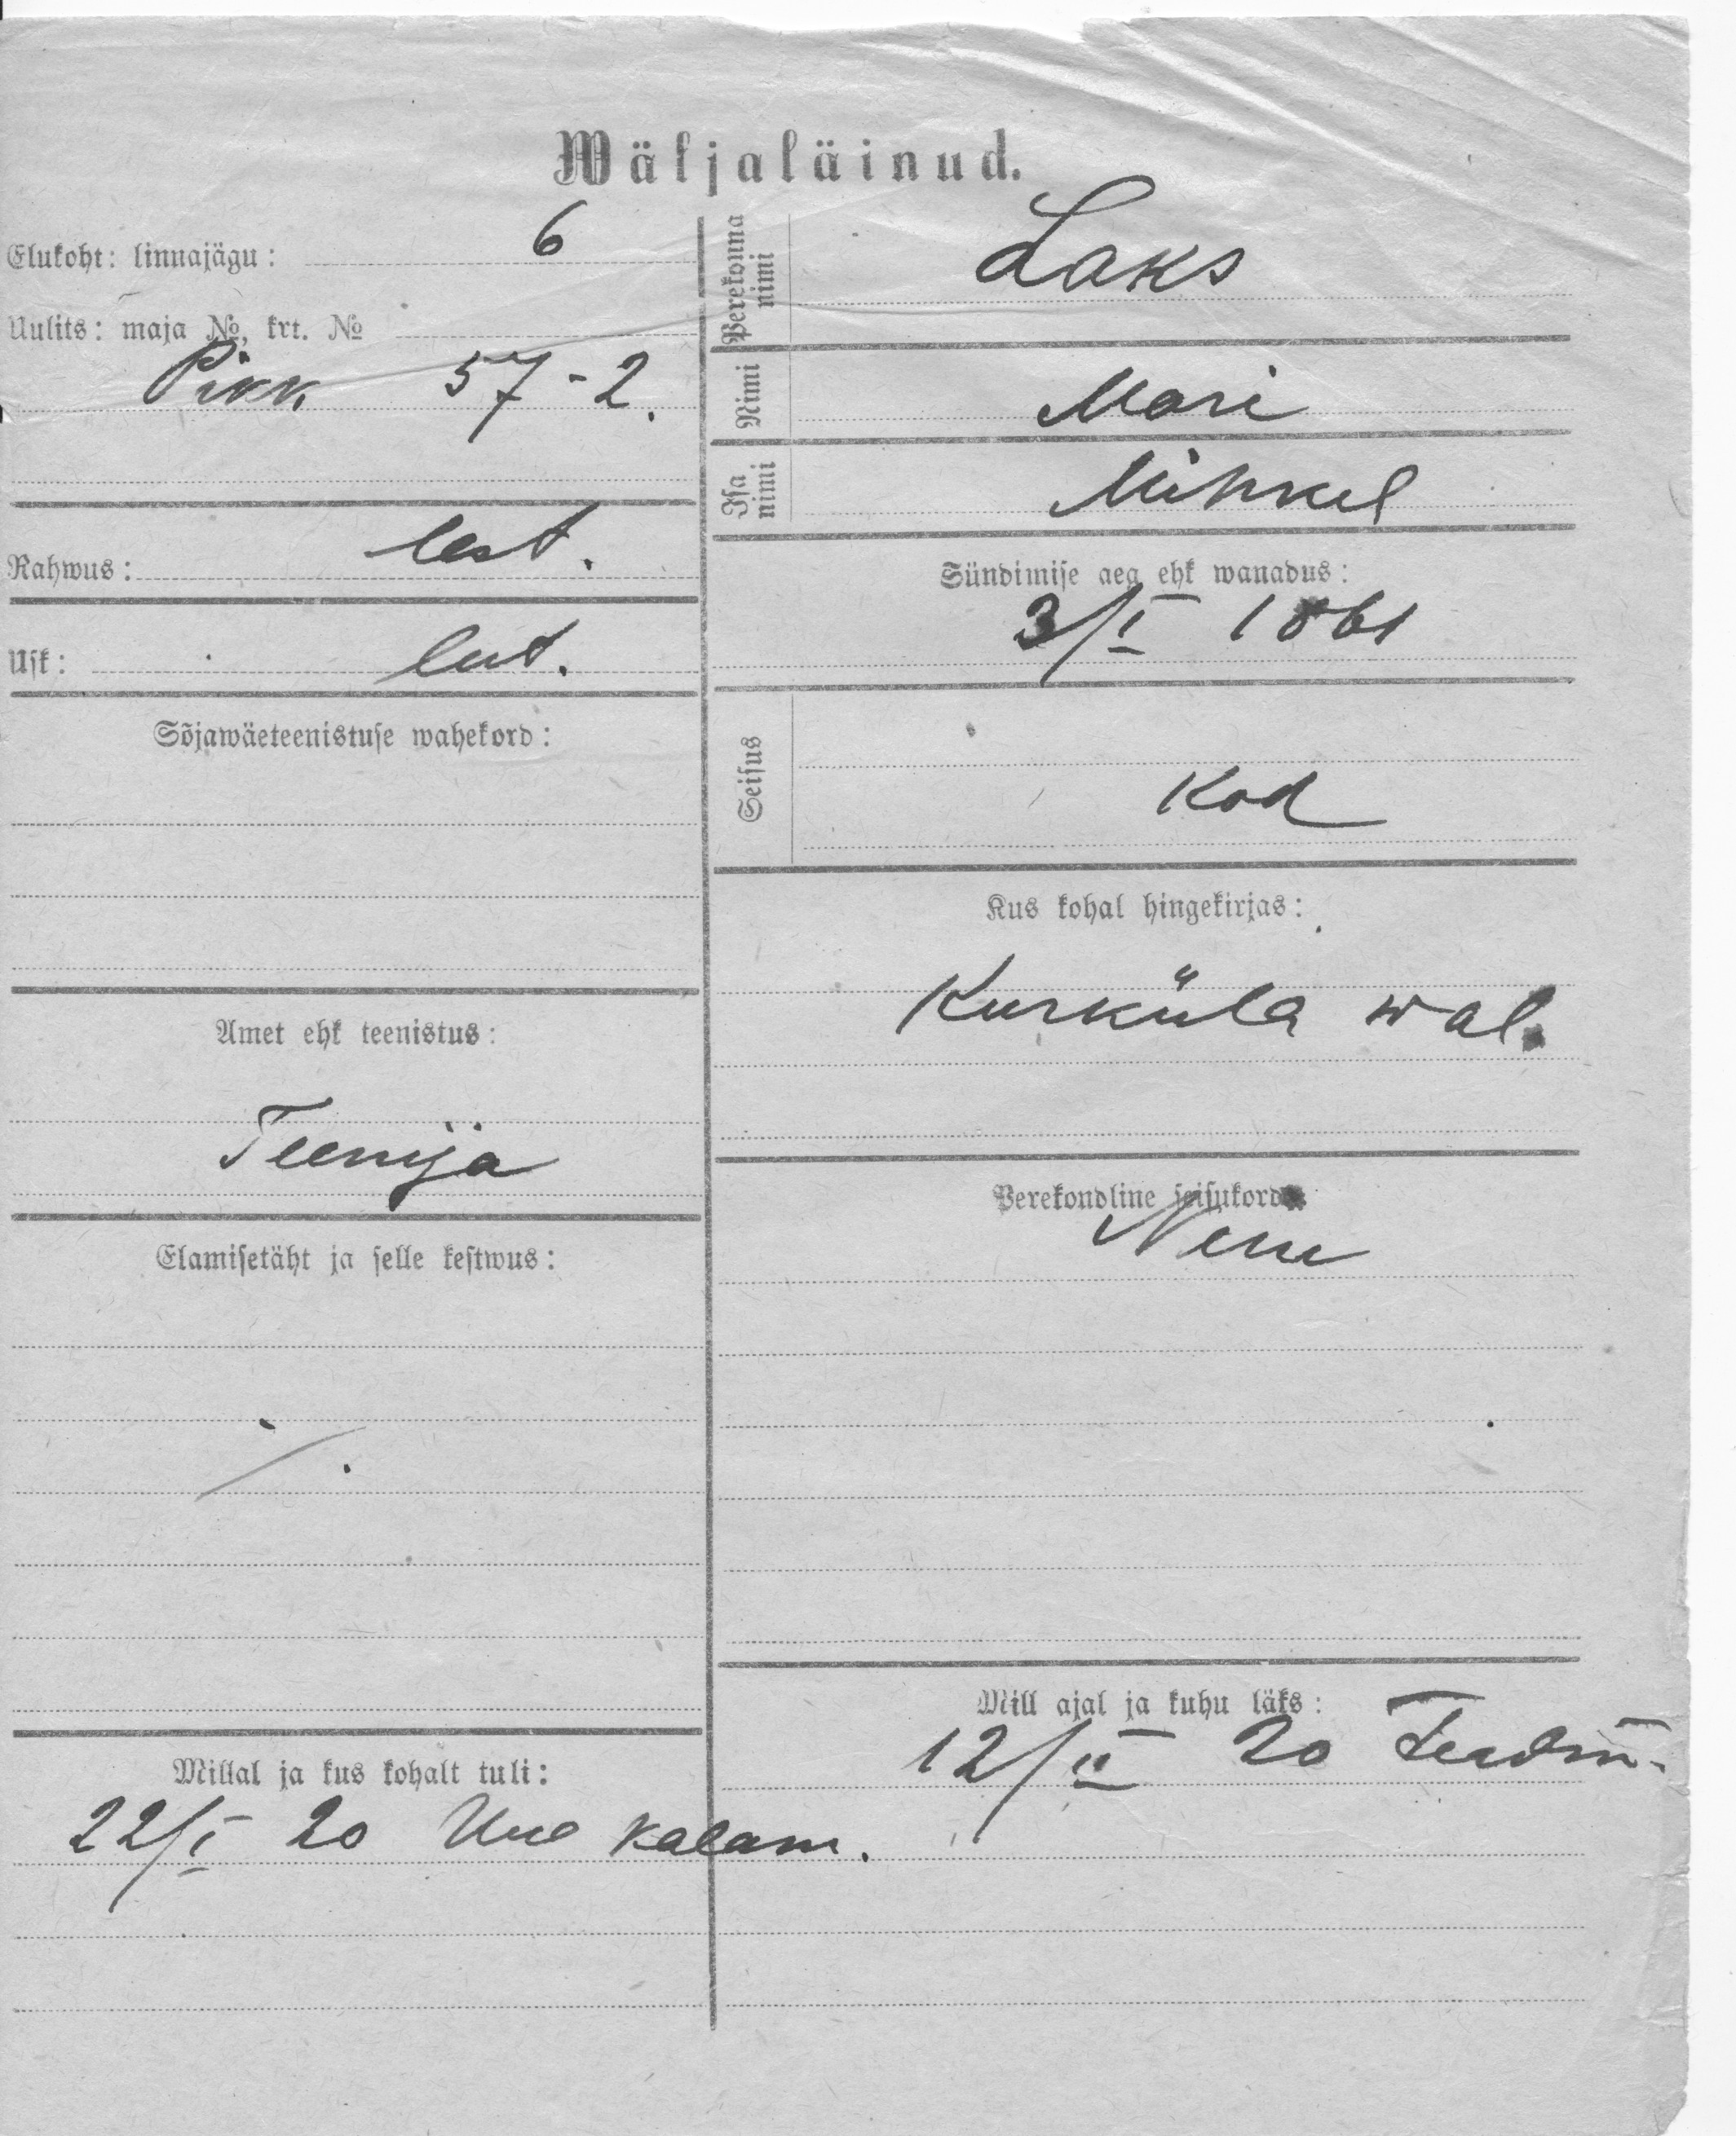 Wäljaläinud.
Elukoht: linnajägu: 6
Uulits: maja №, krt. №
Pikk 57-2.
Rahwus: eest.
Usk: lut.
Sõjawäeteenistuse wahekord:
Amet ehk teenistus:
Teenija
Elamisetäht ja selle kestwus:
Millal ja kus kohalt tuli:
22/I 20 Uue Kalam.
Perekonna nimi Laks
Nimi Mari
Isa nimi Mihkel
Sündimise aeg ehk wanadus:
3/I 1861
Seisus
Kod
Kus kohal hingekirjas:
Kurküla wal.
Perekondline seisukord:
Mill ajal ja kuhu läks:
12/II 20